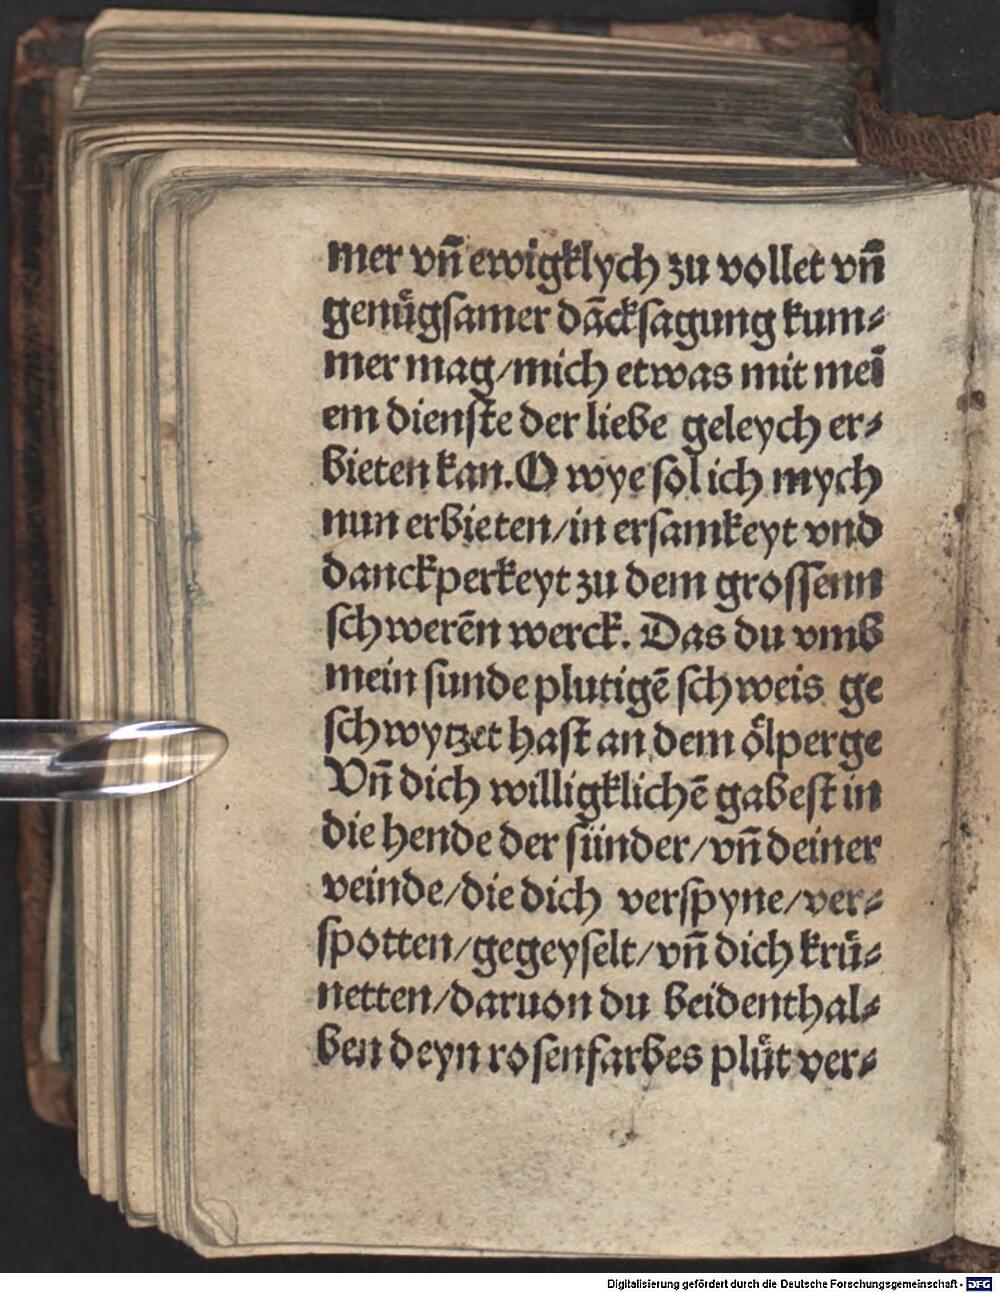 mer vn̄ ewigklych zu vollet vn̄
genuͤgsamer dāck sagung kum⸗
mer mag/mich etwas mit meī
em dienste der liebe geleych er⸗
bieten kan. O wye sol ich mych
nun erbieten/in ersamkeyt vnd
danckperkeyt zu dem grossenn
schwerēn werck. Das du vmb
mein sunde plutigē schweis ge
schwytzet hast an dem oͤlperge
Vn̄ dich willigklichē gabest in
die hende der sünder/vn̄ deiner
veinde/die dich verspyne/ver⸗
spotten/gegeyselt/vn̄ dich kruͤ⸗
netten/daruon du beidenthal⸗
ben deyn rosenfarbes pluͤt ver⸗
Digitalisierung gefördert durch die Deutsche Forschungsgemeinschaft - DFG